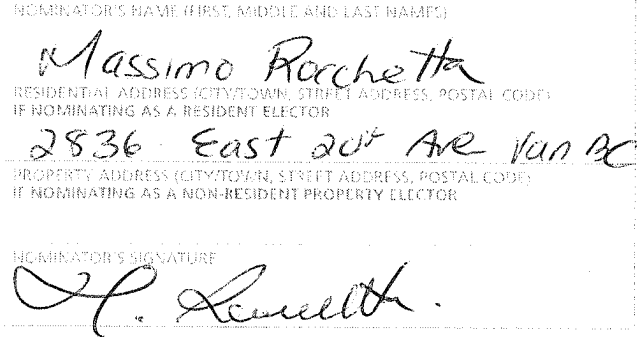 NOMINATOR'S NAME (FIRST, MIDDLE AND LAST NAMES)
Massimo Rocchetta
RESIDENTIAL ADDRESS (CITY/TOWN, STREET ADDRESS, POSTAL CODE)
IF NOMINATING AS A RESIDENT ELECTOR
2836 East 20th Ave Van BC
PROPERTY ADDRESS (CITY/TOWN, STREET ADDRESS, POSTAL CODE)
IF NOMINATING AS A NON-RESIDENT PROPERTY ELECTOR
NOMINATOR'S SIGNATURE
M.